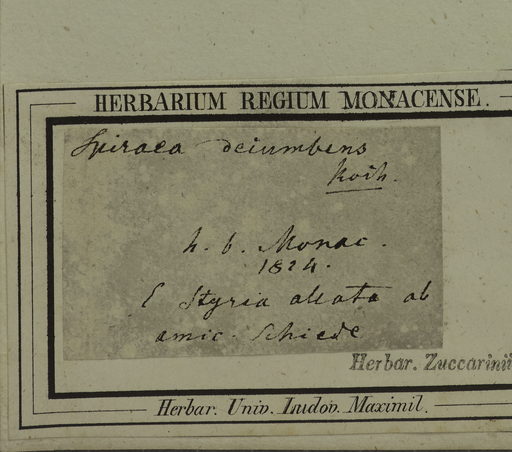 HERBARIUM REGIUM MONACENSE.
Spiraea decumbens
Koch.
h. b. Monac.
1824.
E Styria allata ab
amic. Schiede
Herbar. Zuccarinii
Herbar. Univ. Ludov. Maximil.